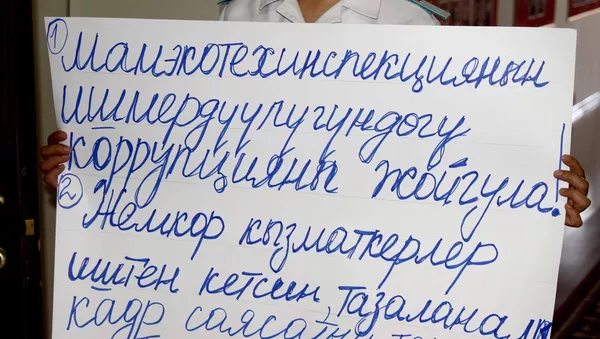 1) Мамэкотехинспекциянын
ишмердүүлүгүндөгү
коррупцияны жойгула!
2) Жемкор кызматкерлер
иштен кетсин, тазаланалы
кадр саясаты